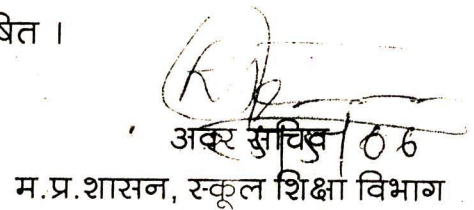 षित ।
अवर सचिव
म.प्र.शासन, स्कूल शिक्षा विभाग